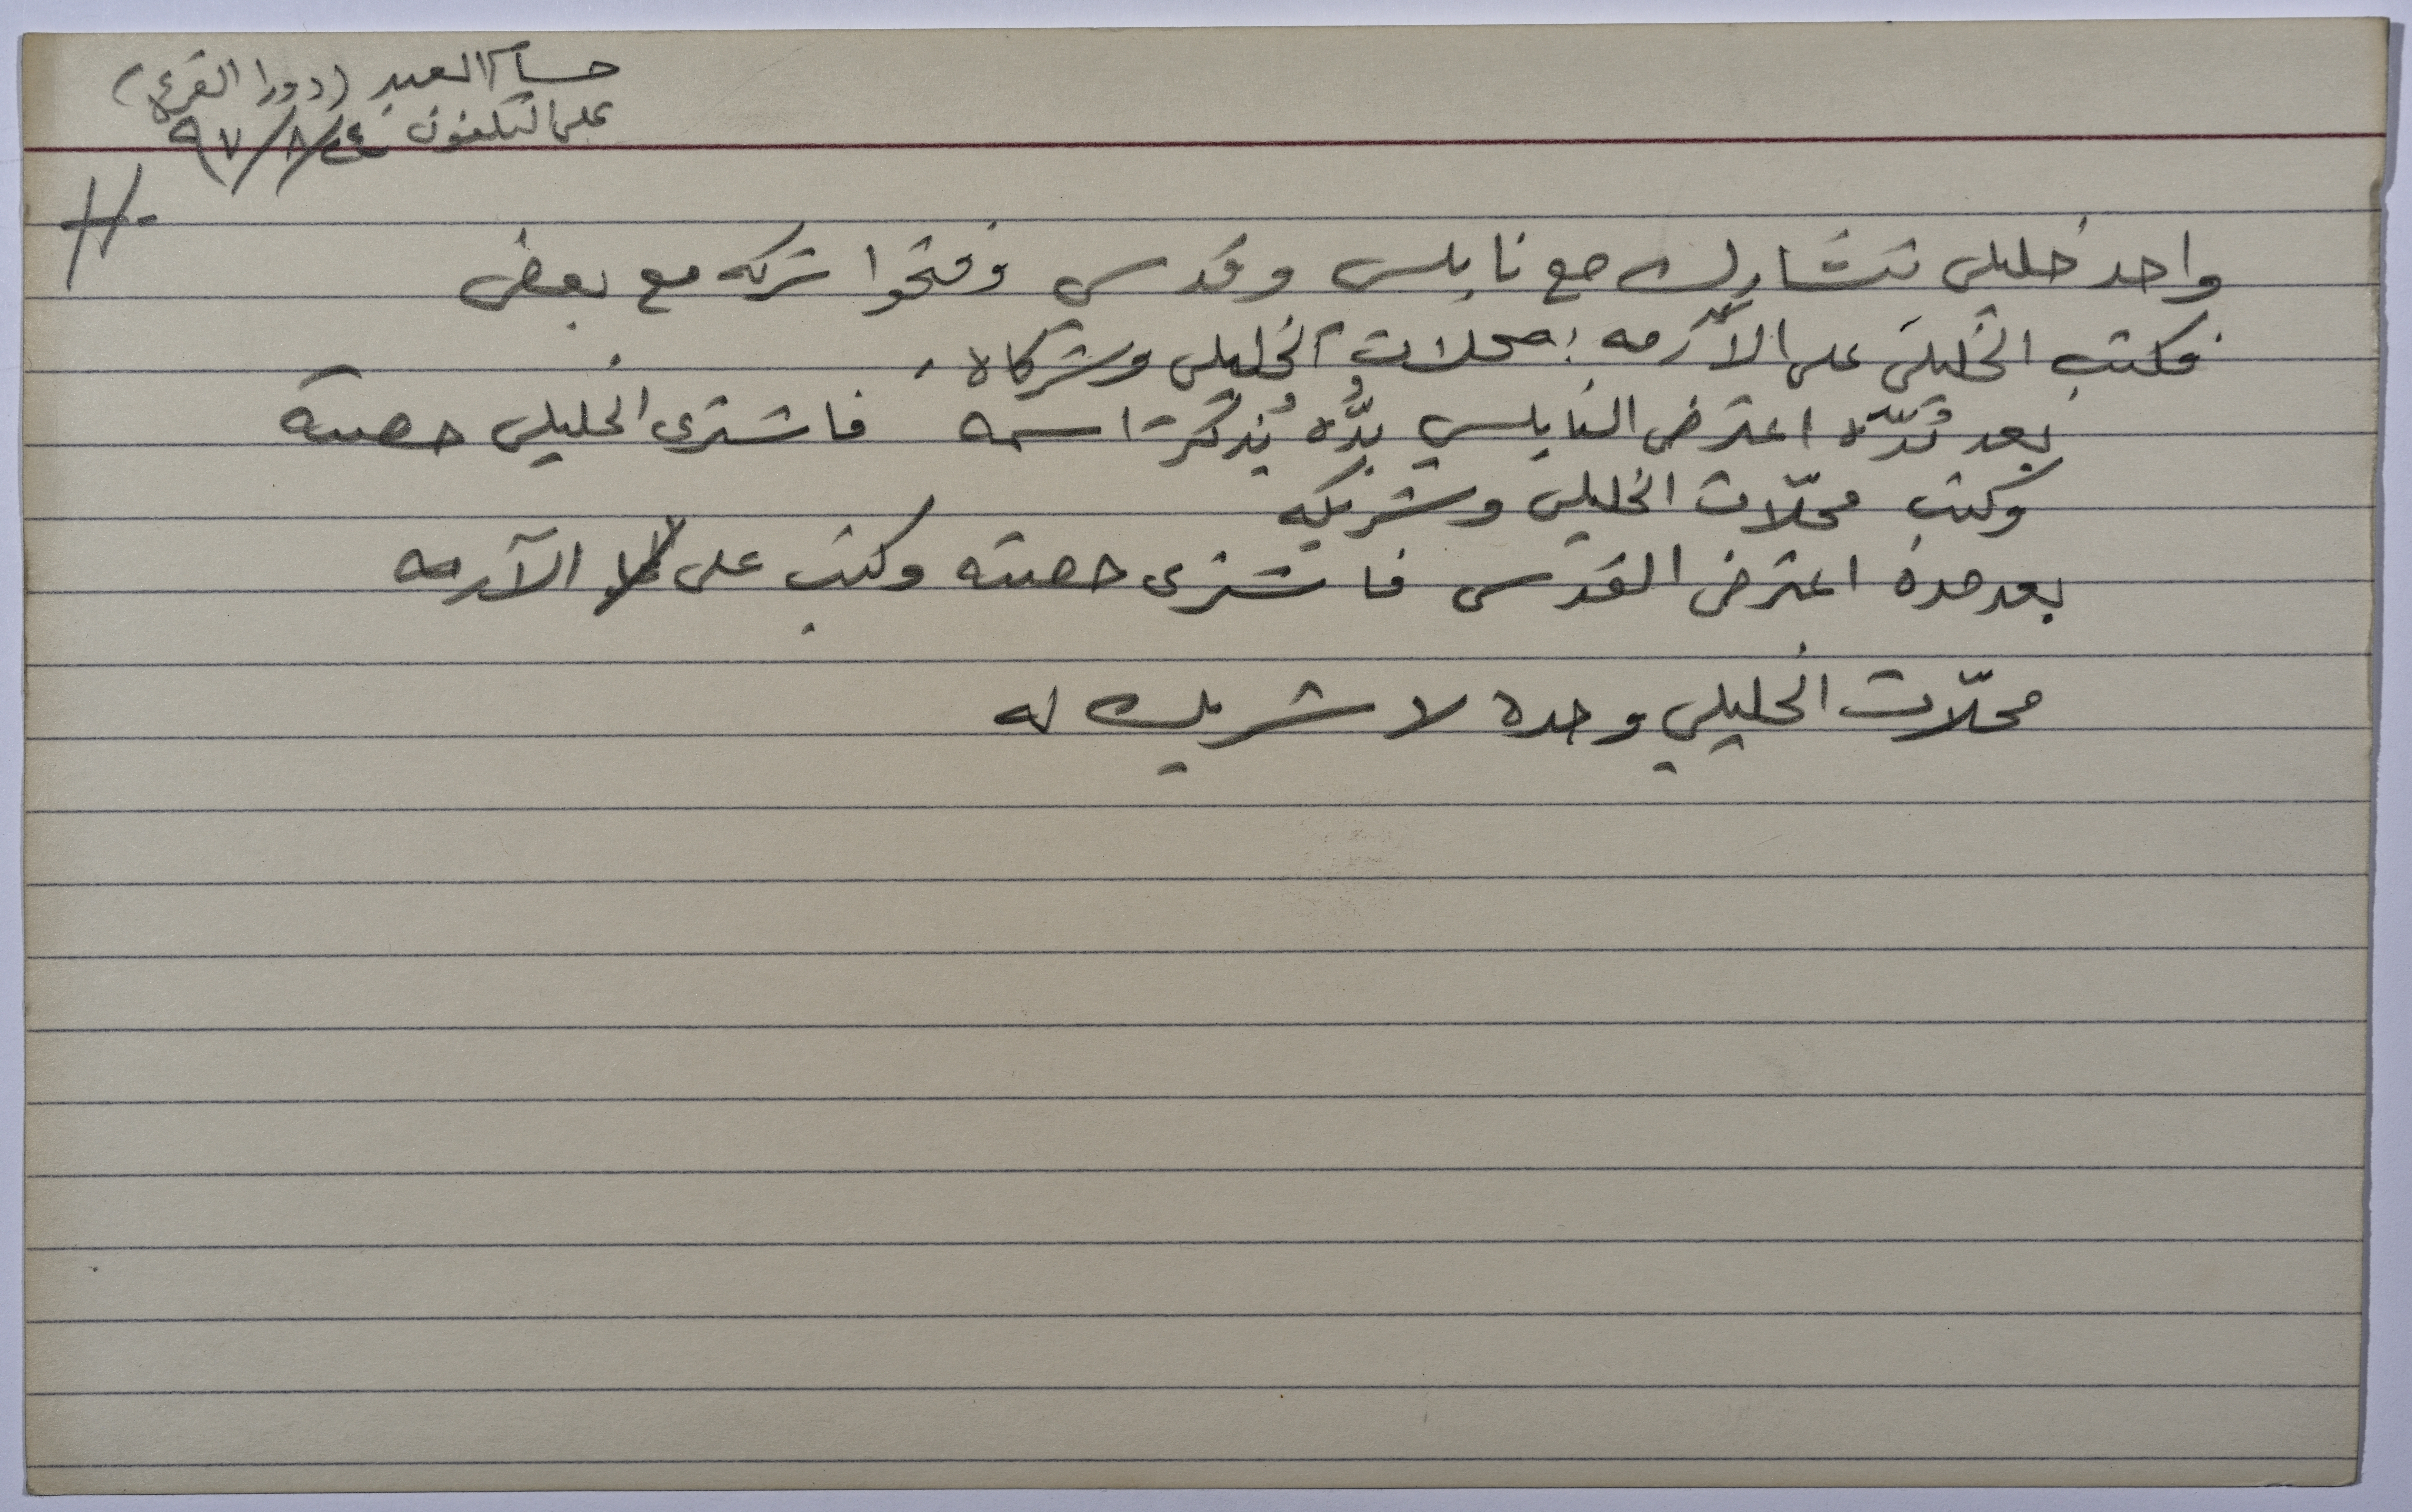 حسام العبد (دورا القرع)
على التلفون ٢٤/٨/٩٧
H-
واحد خليلي تشارك مع نابلسي وقدسي وفتحوا شركه مع بعض
فكتب الخليلي على الآرمه: محلات الخليلي وشركاه.
بعد مُدّه اعترض النابلسي بدُّه يُذكَر اسمه فاشترى الخليلي حصته
وكتب محلّات الخليلي وشريكه
بعد مدة اعترض القدسي فاشترى حصته وكتب على الآرمه
محلّات الخليلي وحده لا شريك له